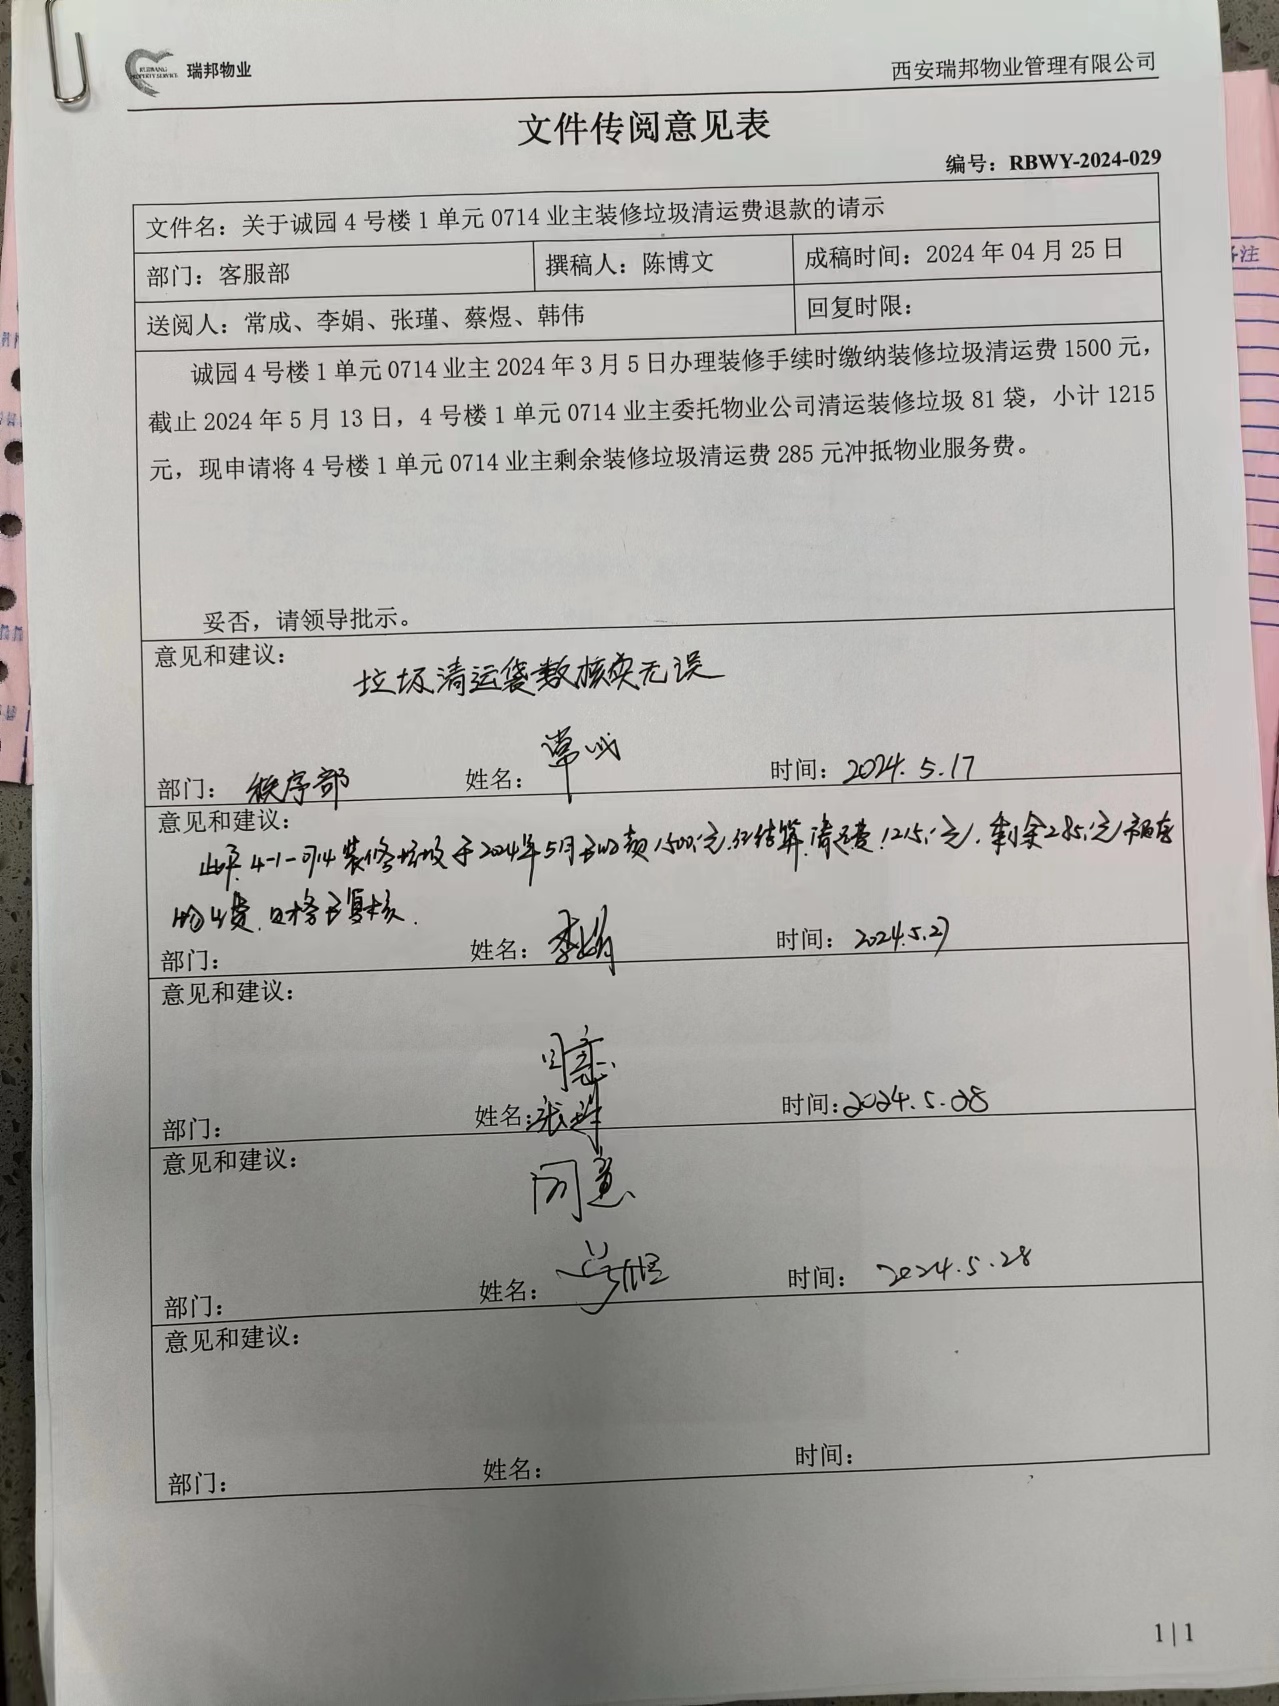 瑞邦物业
西安瑞邦物业管理有限公司
文件传阅意见表
编号：RBWY-2024-029
文件名：关于诚园4号楼1单元0714业主装修垃圾清运费退款的请示
部门：客服部
撰稿人：陈博文
成稿时间：2024年04月25日
送阅人：常成、李娟、张瑾、蔡煜、韩伟
回复时限：
诚园4号楼1单元0714业主2024年3月5日办理装修手续时缴纳装修垃圾清运费1500元，
截止2024年5月13日，4号楼1单元0714业主委托物业公司清运装修垃圾81袋，小计1215
元，现申请将4号楼1单元0714业主剩余装修垃圾清运费285元冲抵物业服务费。
妥否，请领导批示。
意见和建议：
垃圾清运袋数核实无误
部门：秩序部
姓名：常成
时间：2024.5.17
意见和建议：
此户4-1-0714装修垃圾于2024年5月已收预1500元，结算清运费1215元，剩余285元
物业费，已复核.
部门：
姓名：李娟
时间：2024.5.27
意见和建议：
同意
部门：
姓名：张瑾
时间：2024.5.28
意见和建议：
同意
部门：
姓名：蔡煜
时间：2024.5.28
意见和建议：
部门：
姓名：
时间：
1|1
备注